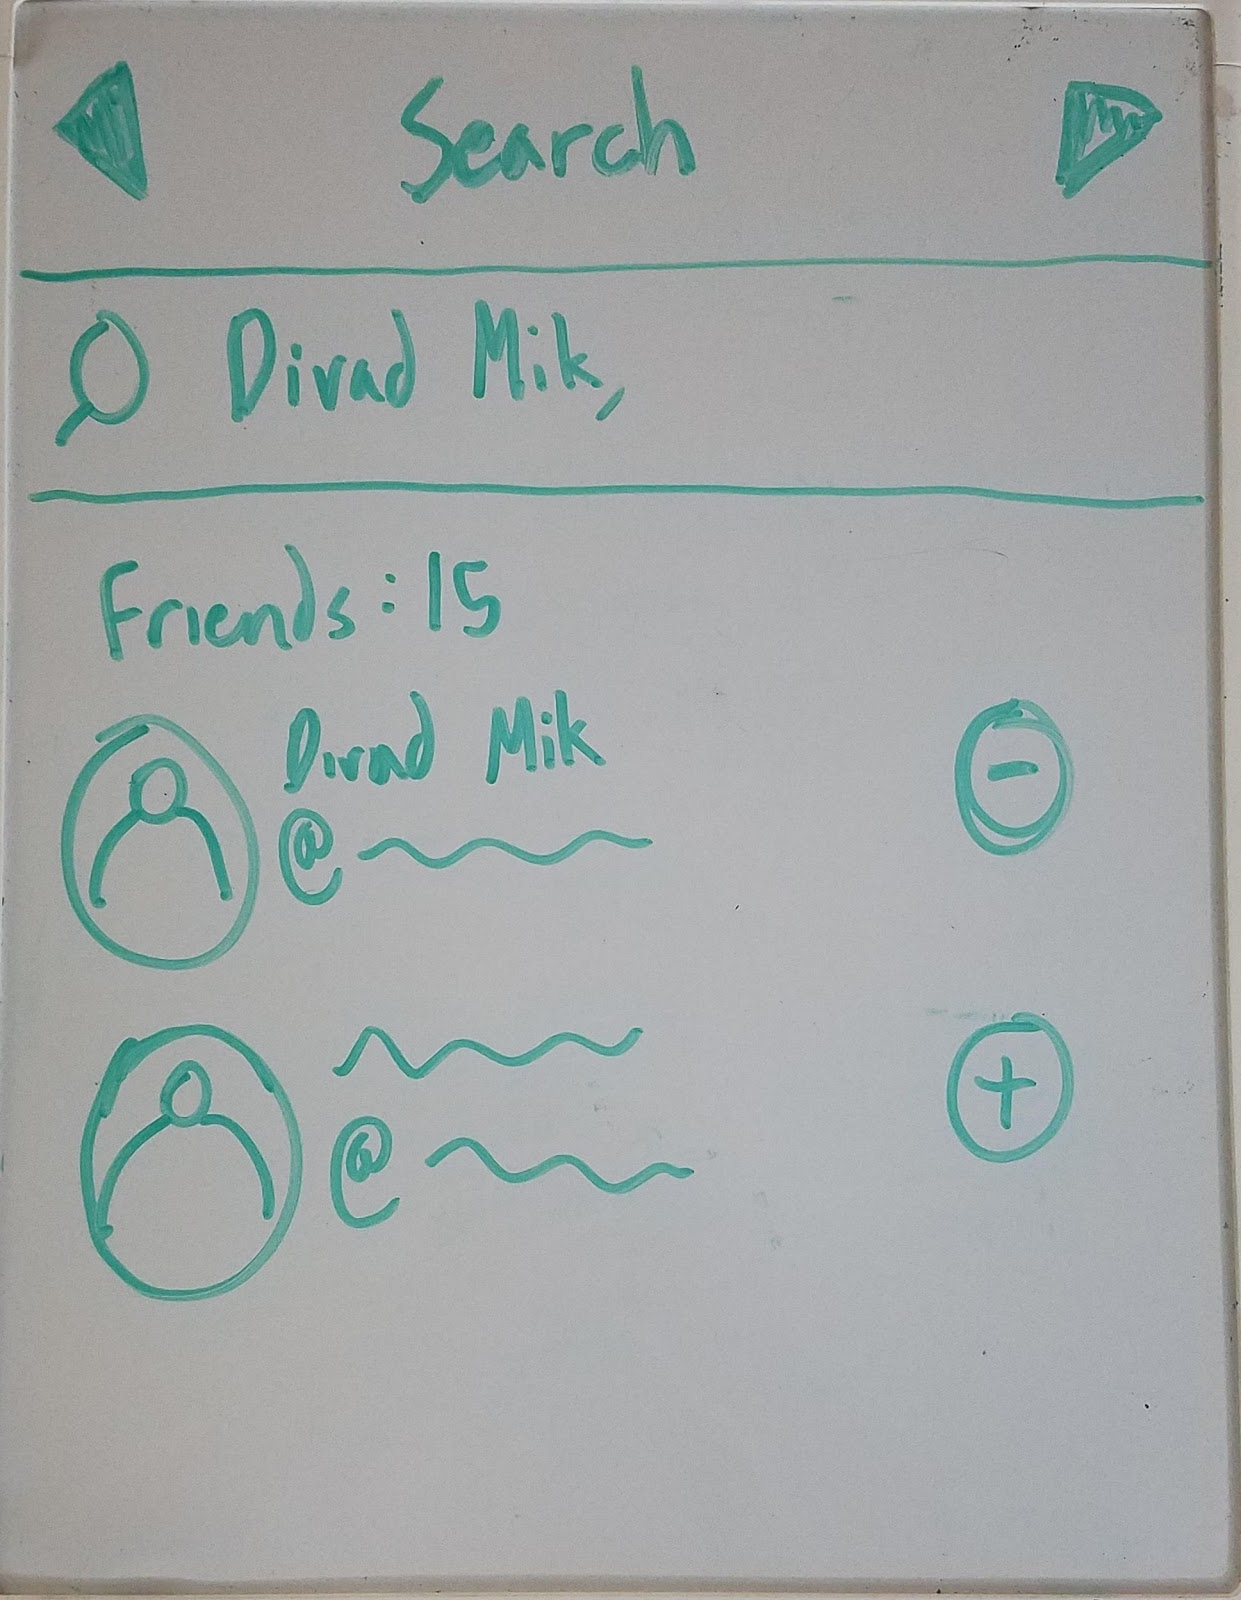 Search
Divad Mik,
Friends: 15
Divad Mik
@
-
+
@